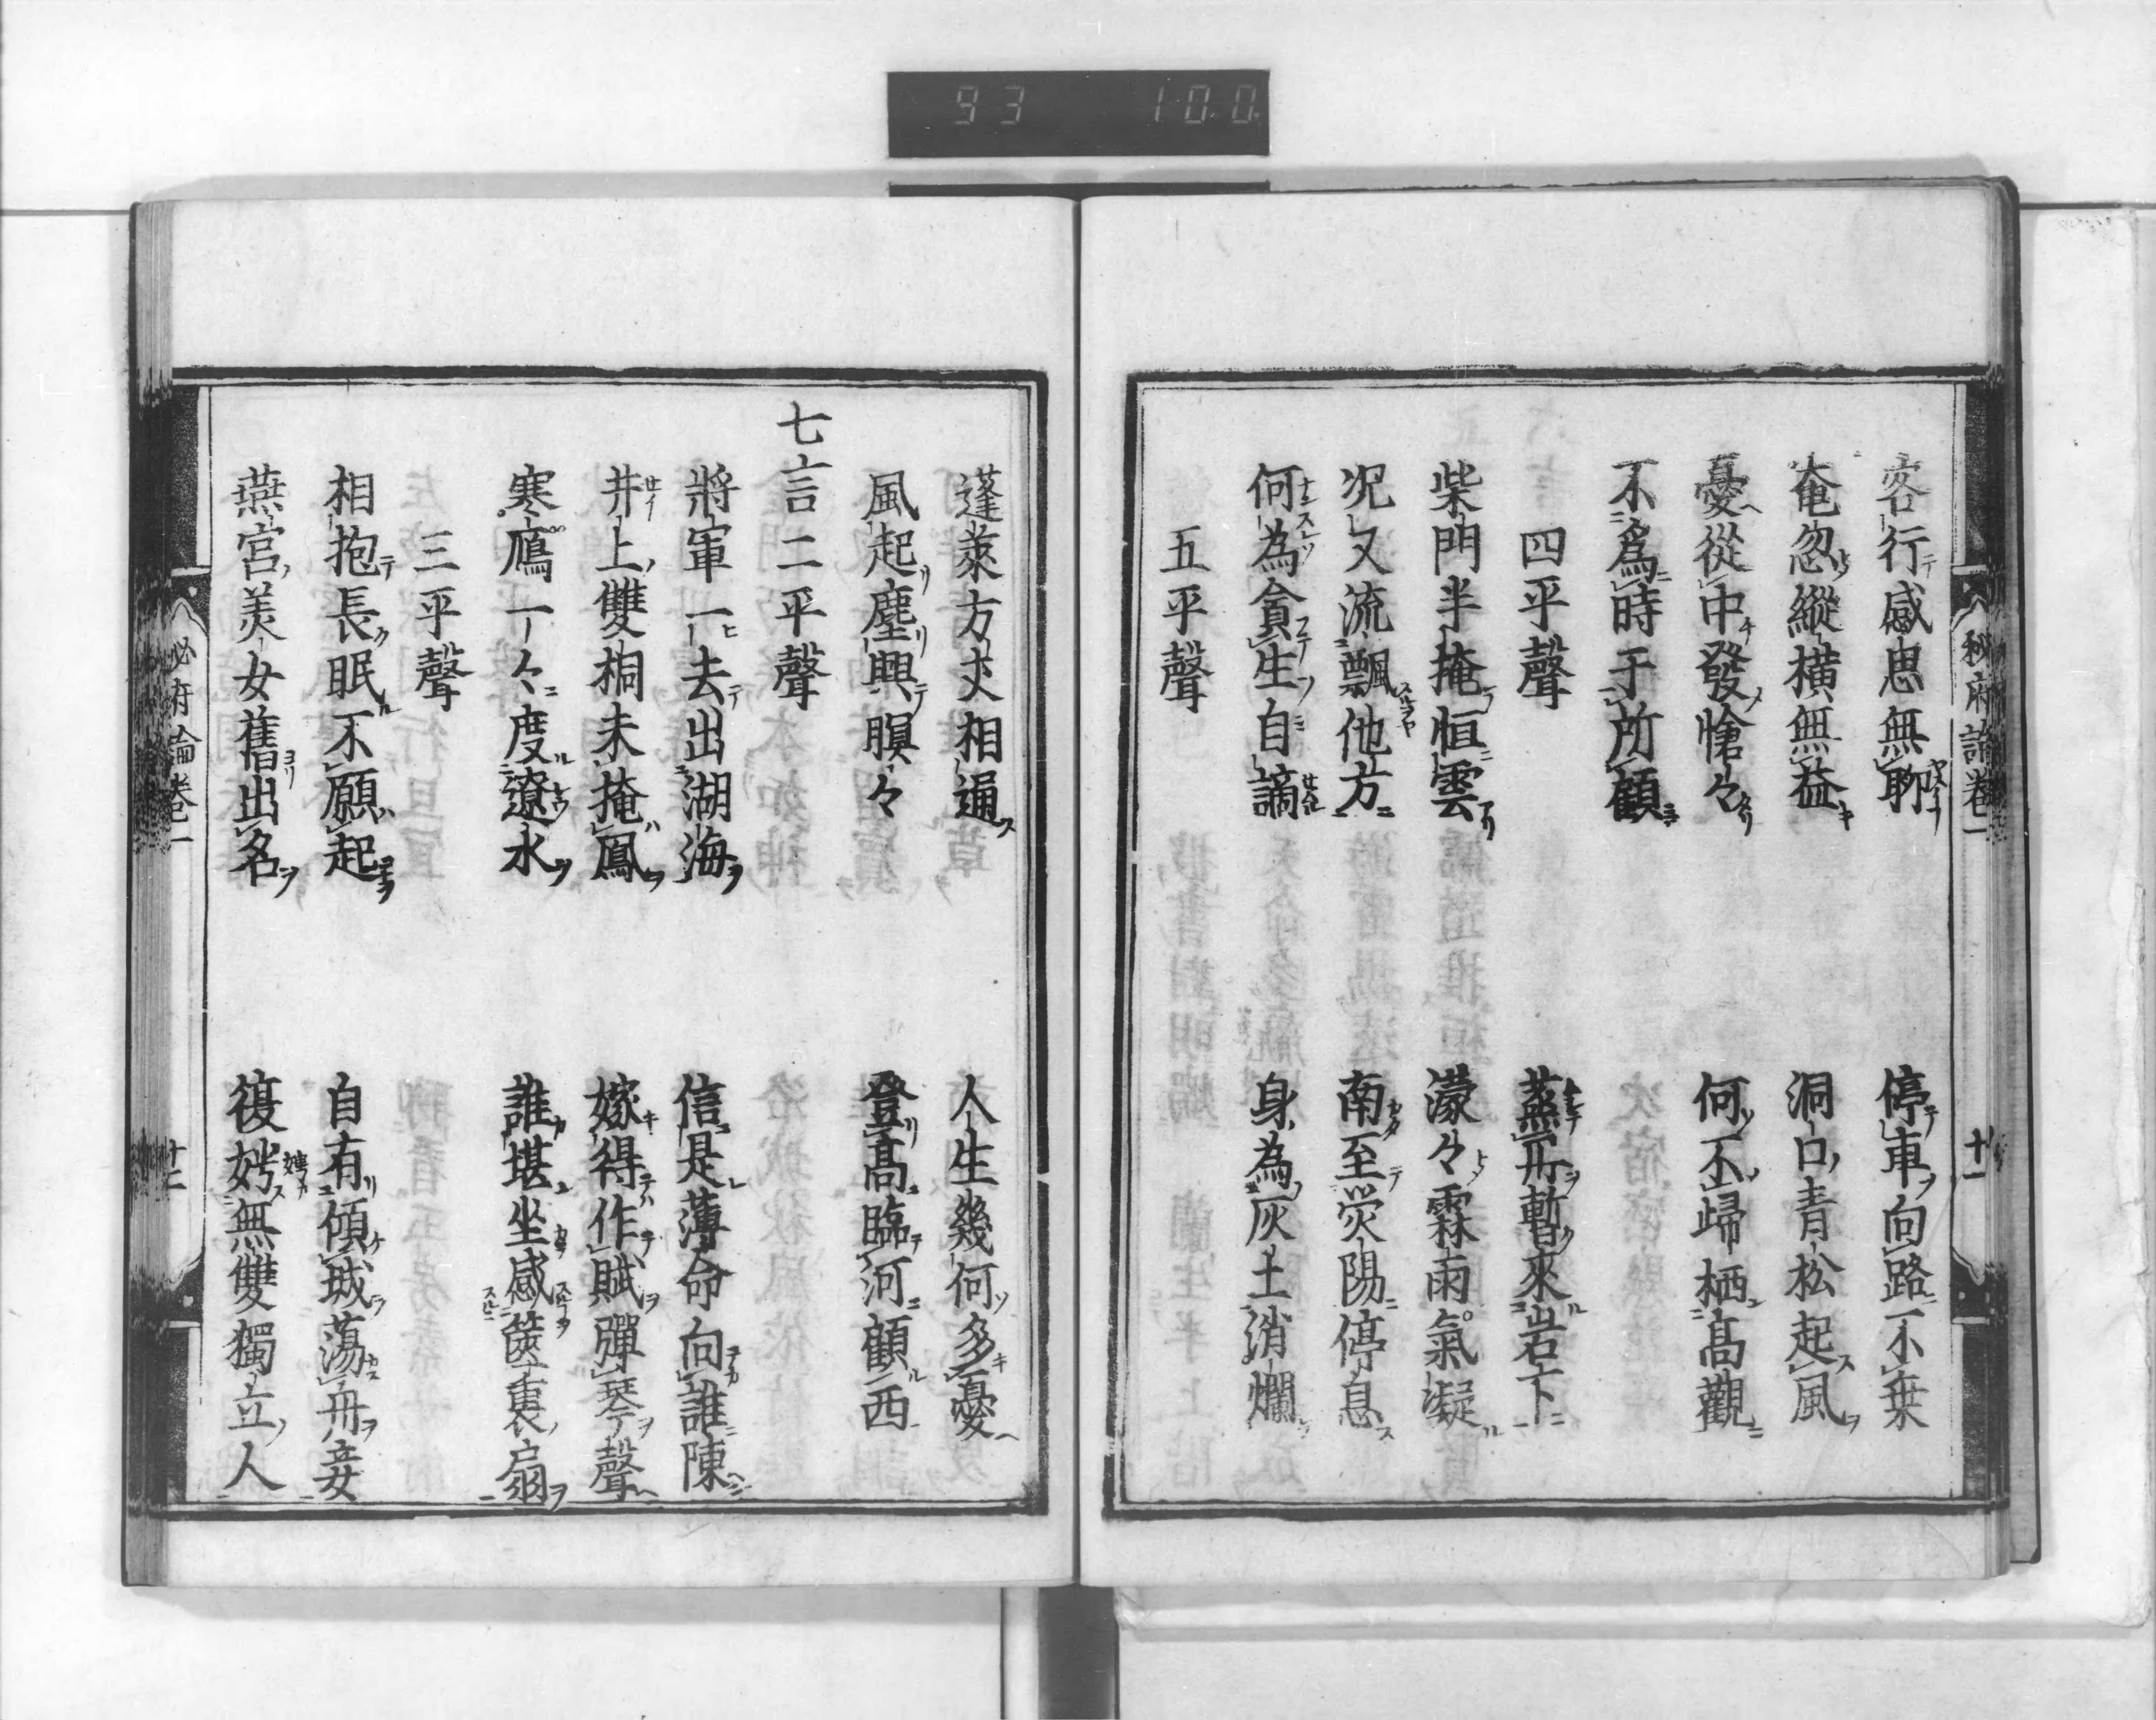 93 100
秘府論卷一 十一
客行感思無聊 停車向路不乗
奄忽縱横無益 洞口青松起風
憂從中發愴々 何不歸栖髙觀
不爲時于所顧
四平聲 蒸丹暫來岩下
柴門半掩恒雲 濛々霖雨氣凝
况又流飄他方 南至滎陽停息
何為貪生自謫 身為灰土消爛
五平聲
蓬萊方丈相通 人生幾何多憂
風起塵興暝々 登髙臨河顧西
七言二平聲
將軍一去出湖海 信是薄命向誰陳
井上雙桐未掩鳳 嫁得作賦彈琴聲
寒鴈一々度遼水 誰堪坐感篋裏扇
三平聲
相抱長眠不願起 自有傾城蕩舟妾
燕宮美女舊出名 復娉無雙獨立人
秘府論卷一 十二